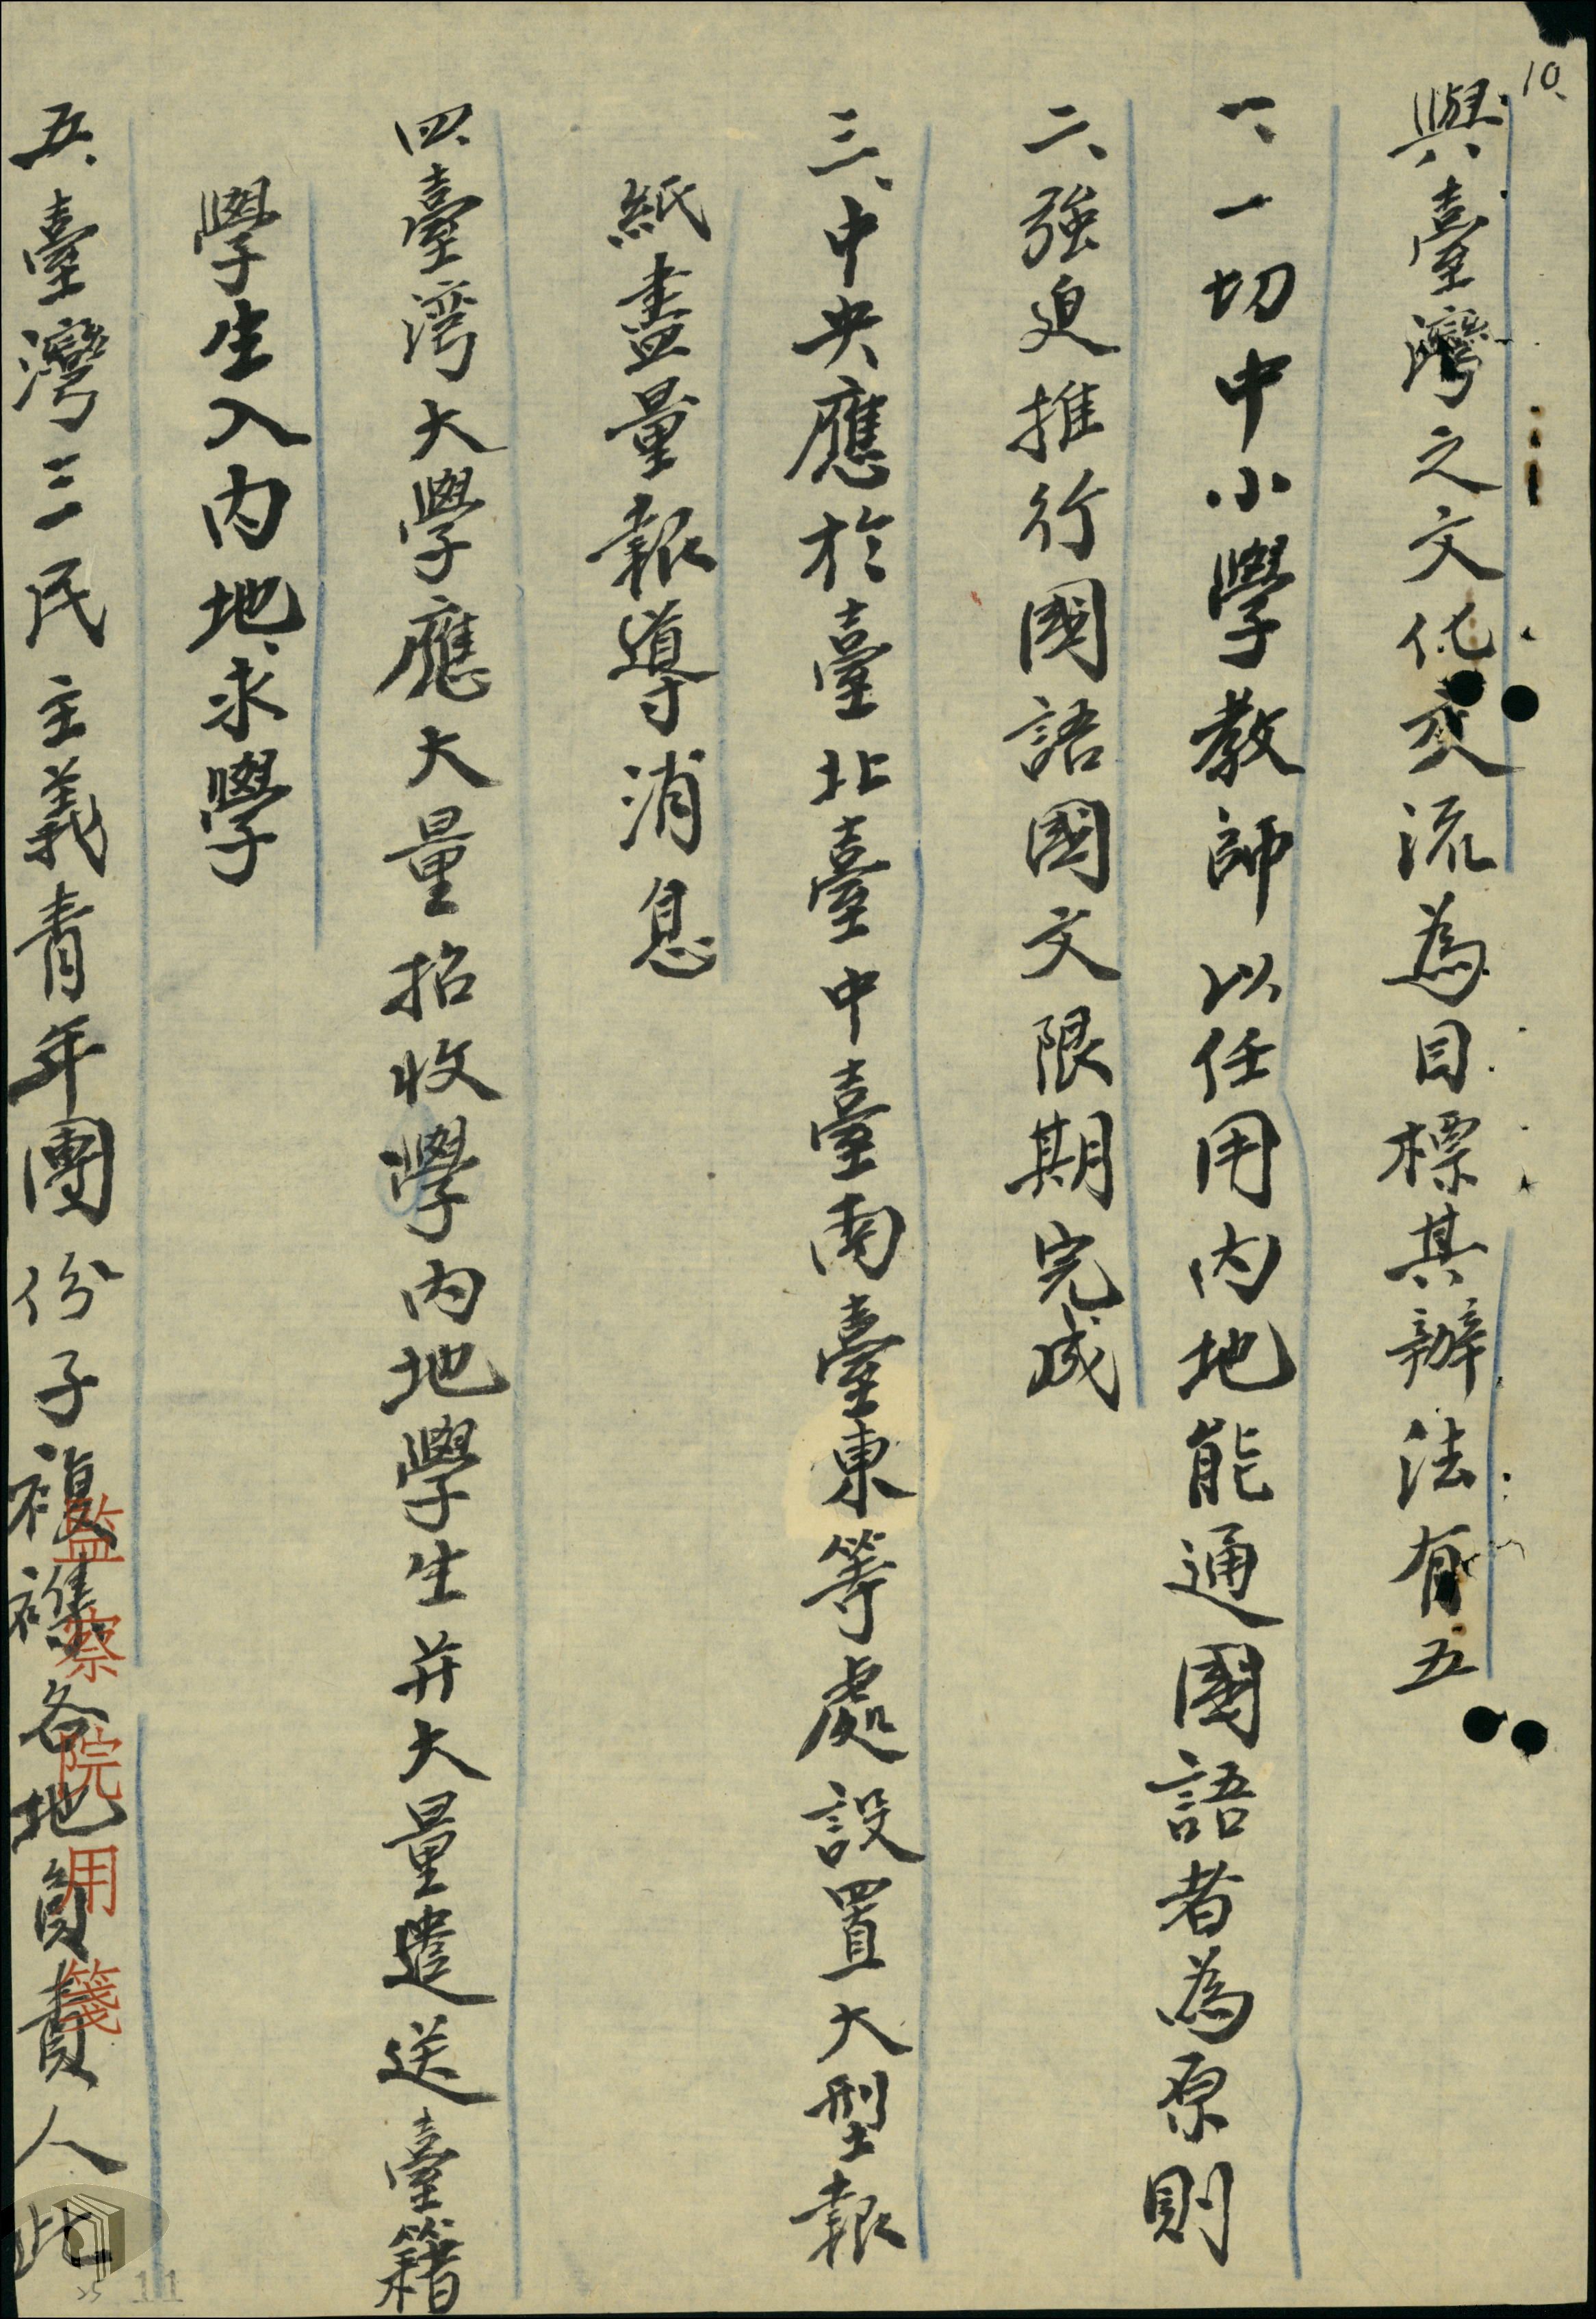 10.
與臺灣之文化交流為目標其辦法有五
一、一切中小學教師以任用內地能通國語者為原則
二、強迫推行國語國文限期完成
三、中央應於臺北臺中臺南臺東等處設置大型報
紙盡量報導消息
四、臺灣大學應大量招收學內地學生并大量遣送臺籍
學生入內地求學
五、臺灣三民主義青年團份子複雜各地負責人此
監察院用箋
11